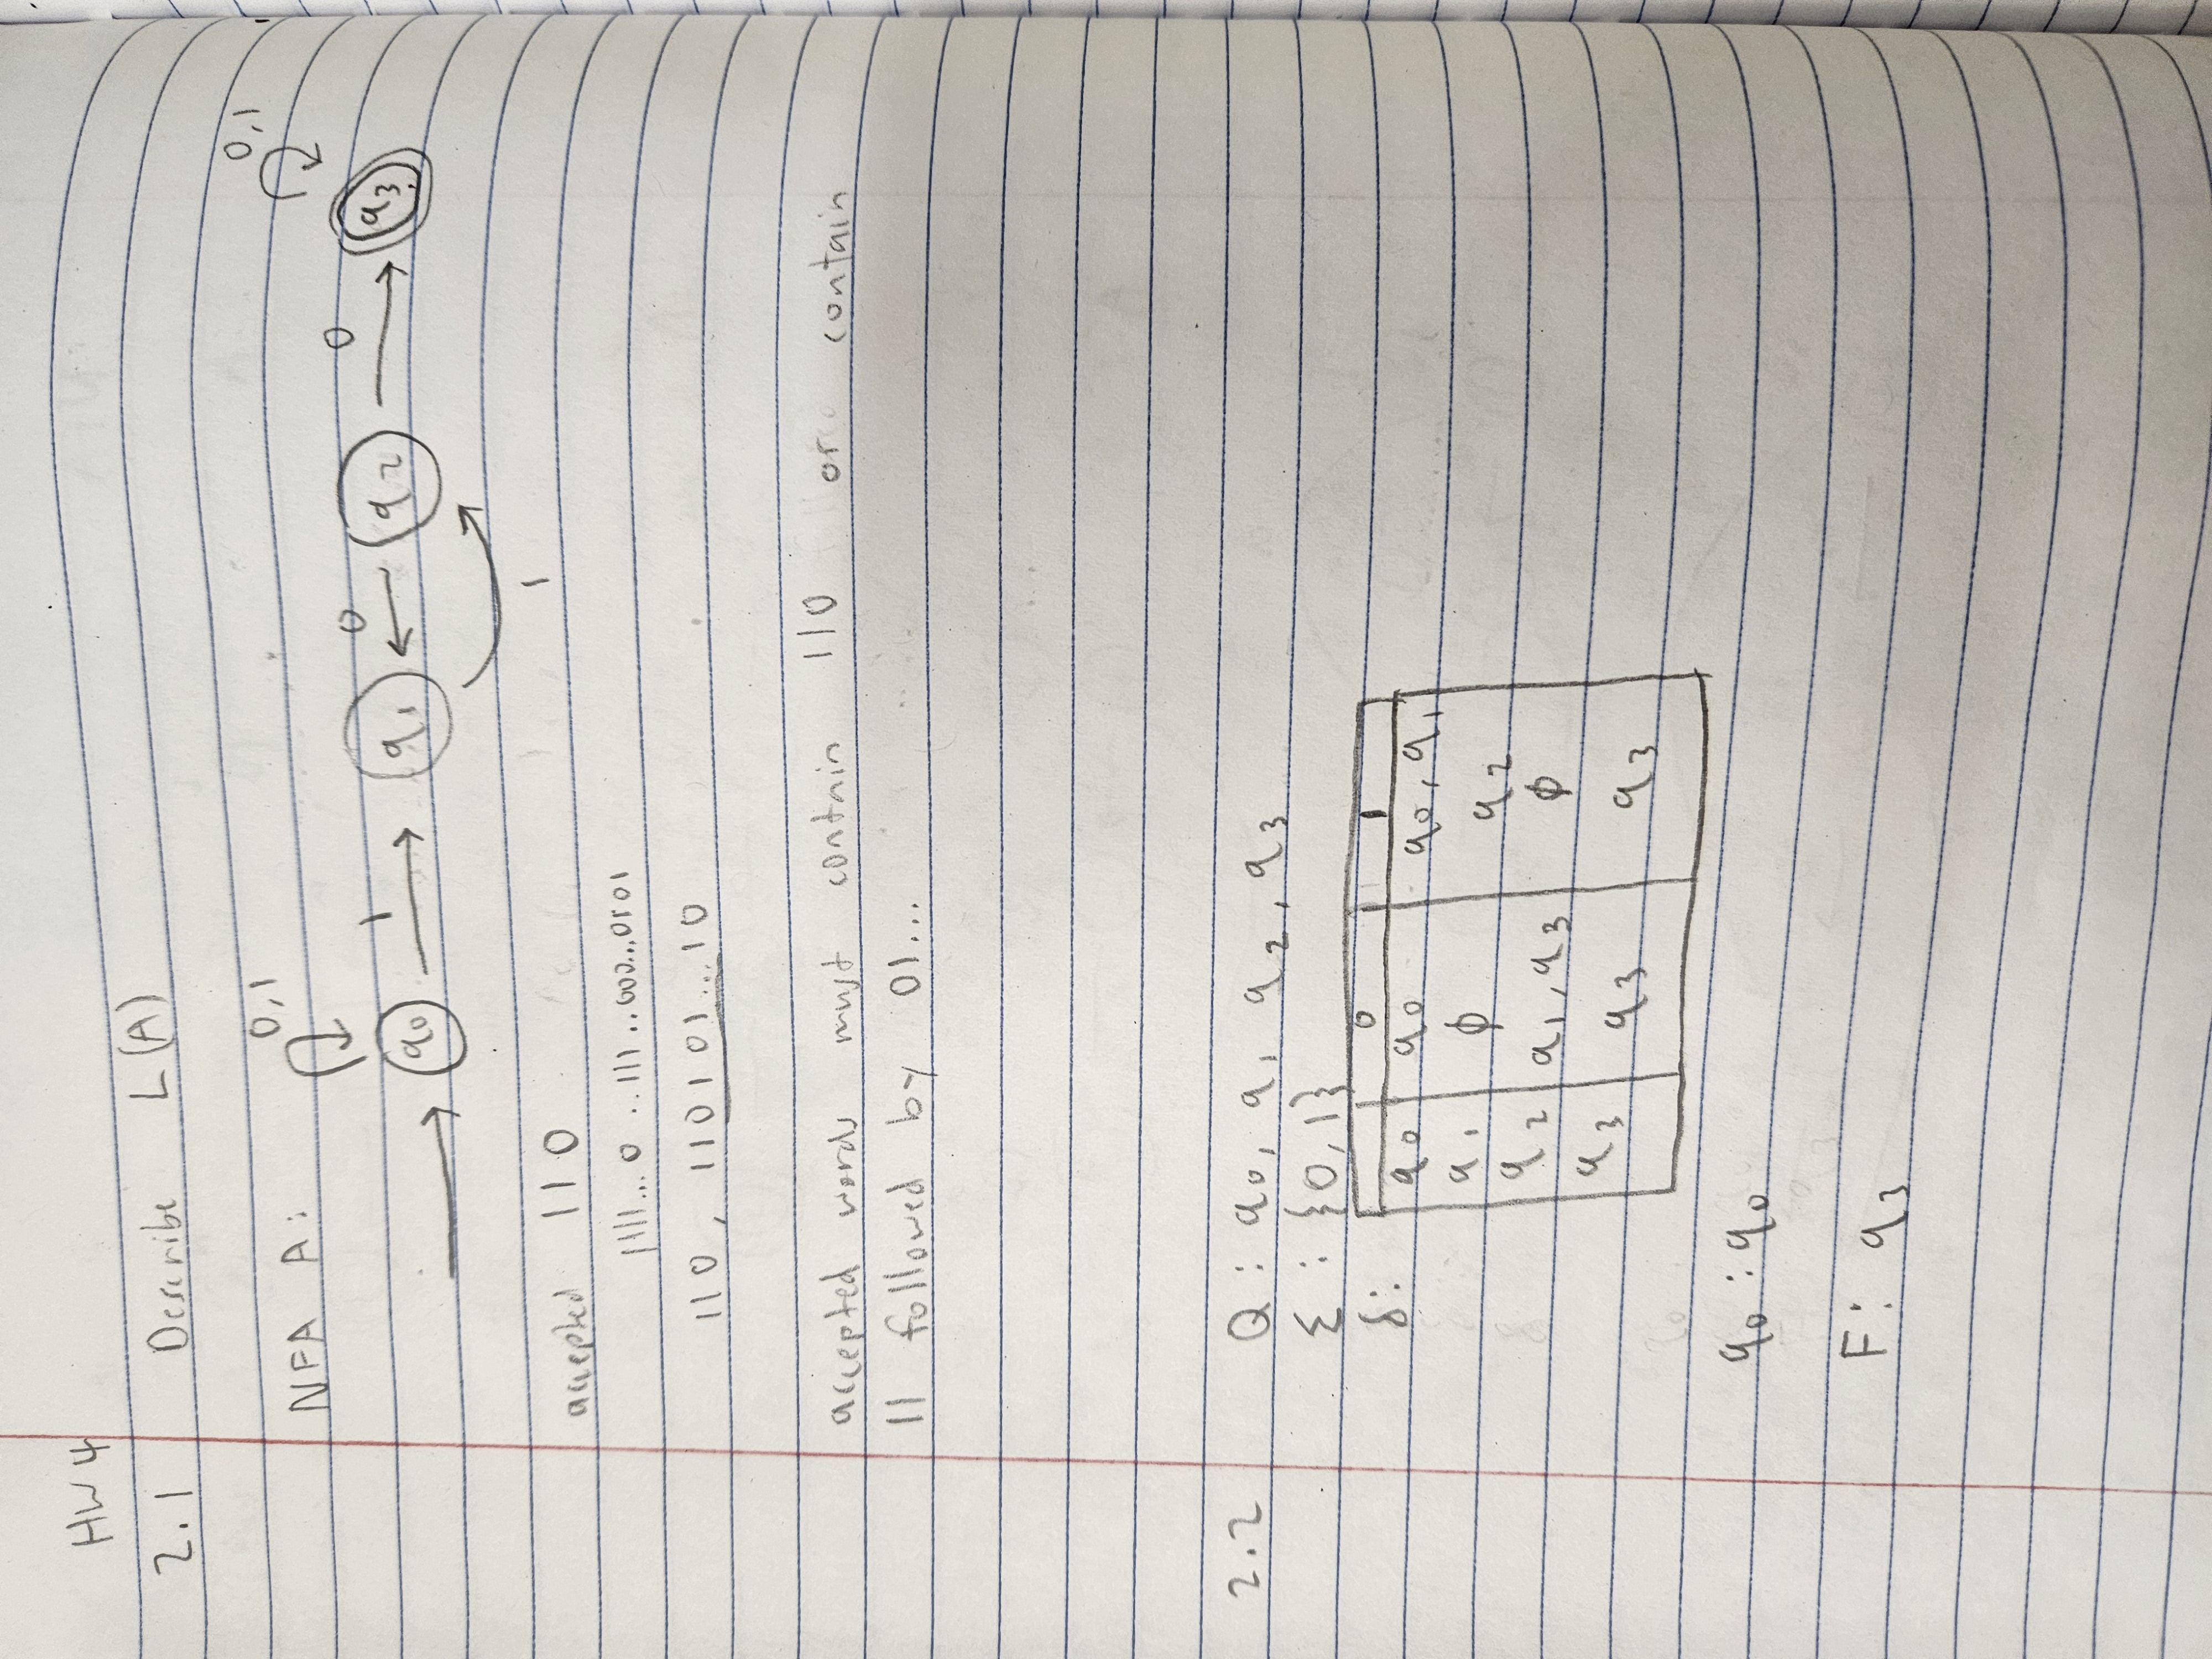 HW 4
2.1 Describe L(A)
0,1 0,1
NFA A:
1 0 0
q0 q1 q2 q3
1
accepted 110
11111...0..111..000...0101
110, 110101...10
accepted words must contain 110 or contain
11 followed by 01...
2.2 Q: q0, q1 q2, q3
Σ: {0,1}
δ: 0 1
q0 q0 q0, q1
q1 ∅ q2
q2 q1, q3 ∅
q3 q3 q3
q0: q0
F: q3